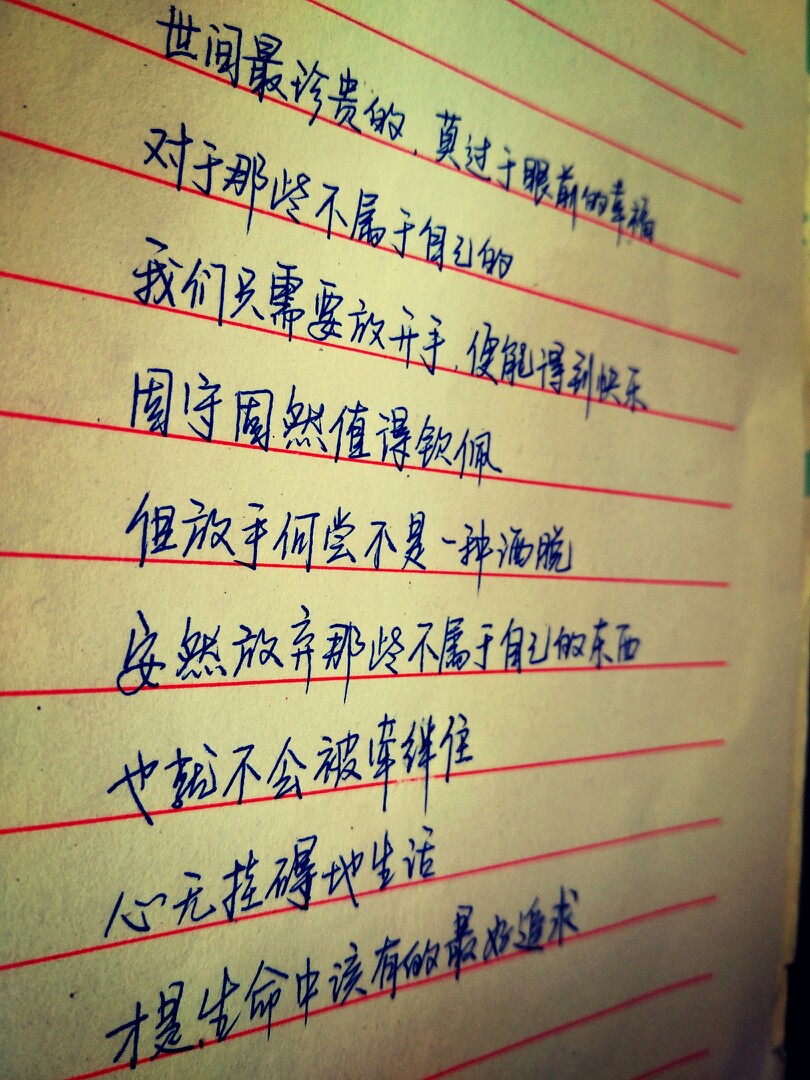 世间最珍贵的，莫过于眼前的幸福
对于那些不属于自己的
我们只需要放开手，便能得到快乐
固守固然值得钦佩
但放手何尝不是一种洒脱
安然放弃那些不属于自己的东西
也就不会被牵绊住
心无挂碍地生活
才是生命中该有的最好追求